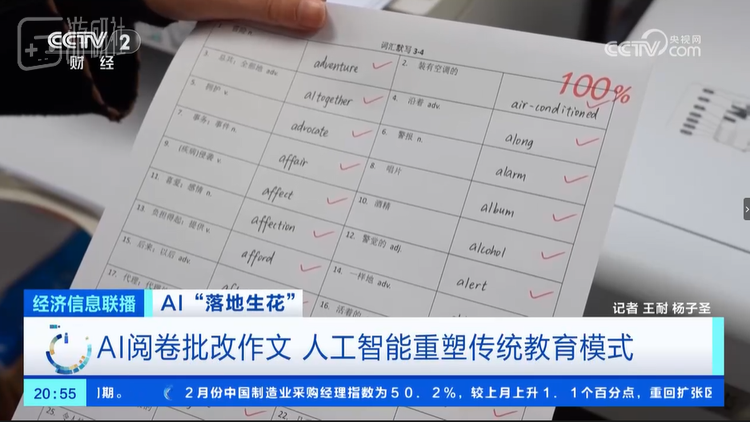 CCTV 2
财经
游研社
央视网
CCTV.com
词汇默写3-4
100%
3. 总共;全部地 adv.
adventure
2. 装有空调的
air-conditioned
5. 拥护 v.
altogether
4. 沿着 adv.
along
7. 事务;事件 n.
advocate
6. 警报 n.
alarm
9. (疾病)侵袭 v.
affair
8. 唱片
album
11. 喜爱;感情 n.
affect
10. 酒精
alcohol
13. 负担得起;提供 v.
affection
12. 警觉的 adj.
alert
15. 后来;以后 adv.
afford
14. 一样地 adv.
17. 代理;代理
16. 活着的
25.
经济信息联播
AI“落地生花”
记者 王耐 杨子圣
AI阅卷批改作文 人工智能重塑传统教育模式
20:55
期。
2月份中国制造业采购经理指数为50.2%,较上月上升1.1个百分点,重回扩张区